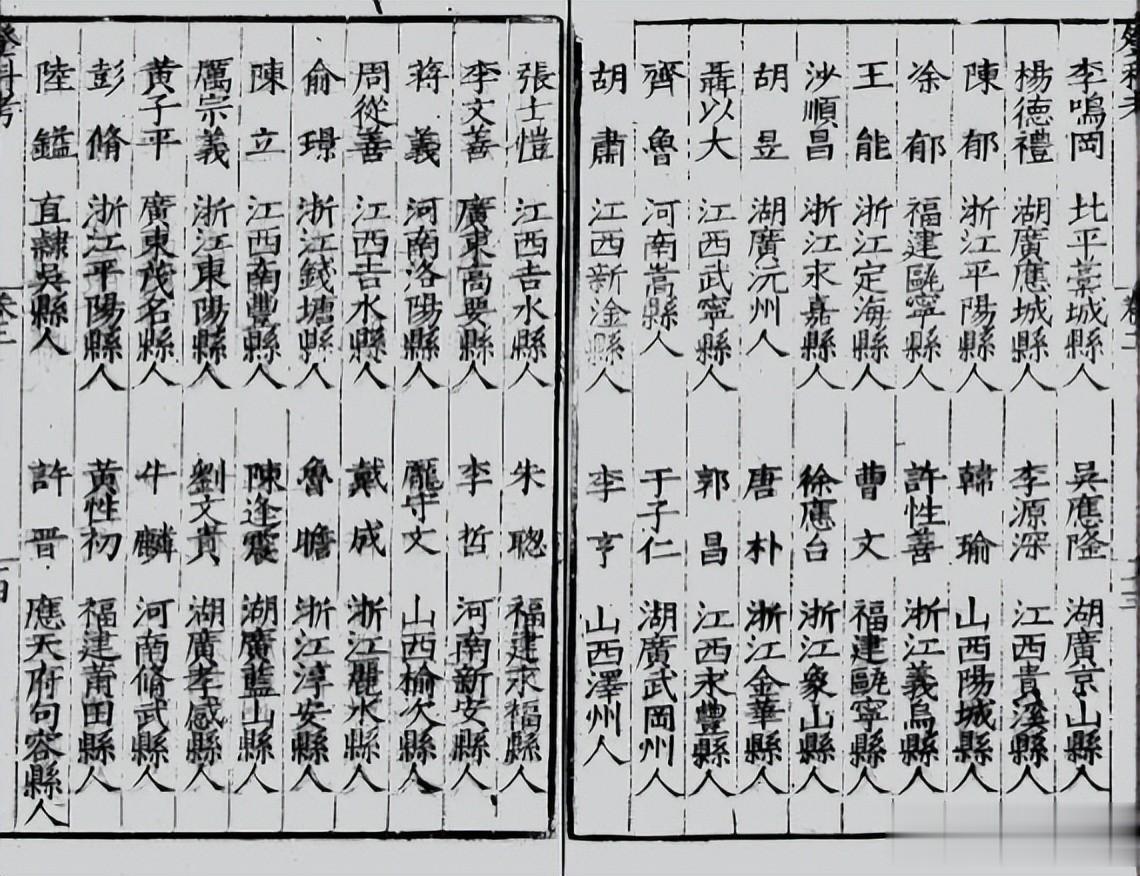 李鳴岡 北平藁城縣人 吳應隆 湖廣京山縣人
楊德禮 湖廣應城縣人 李源深 江西貴溪縣人
陳郁 浙江平陽縣人 韓瑜 山西陽城縣人
凃郁 福建甌寧縣人 許性善 浙江義烏縣人
王能 浙江定海縣人 曹文 福建甌寧縣人
沙順昌 浙江永嘉縣人 徐應台 浙江象山縣人
胡昱 湖廣沅州人 唐朴 浙江金華縣人
聶以大 江西武寧縣人 郭昌 江西永豐縣人
齊魯 河南嵩縣人 于子仁 湖廣武岡州人
胡肅 江西新淦縣人 李亨 山西澤州人
張士愷 江西吉水縣人 朱聦 福建永福縣人
李文善 廣東高要縣人 李哲 河南新安縣人
蔣義 河南洛陽縣人 龐守文 山西榆次縣人
周從善 江西吉水縣人 戴成 浙江麗水縣人
俞璟 浙江錢塘縣人 魯瞻 浙江淳安縣人
陳立 江西南豐縣人 陳逢震 湖廣藍山縣人
厲宗義 浙江東陽縣人 劉文貴 湖廣孝感縣人
黃子平 廣東茂名縣人 牛麟 河南脩武縣人
彭脩 浙江平陽縣人 黃性初 福建莆田縣人
陸鎰 直隷吳縣人 許晋 應天府句容縣人
登科考